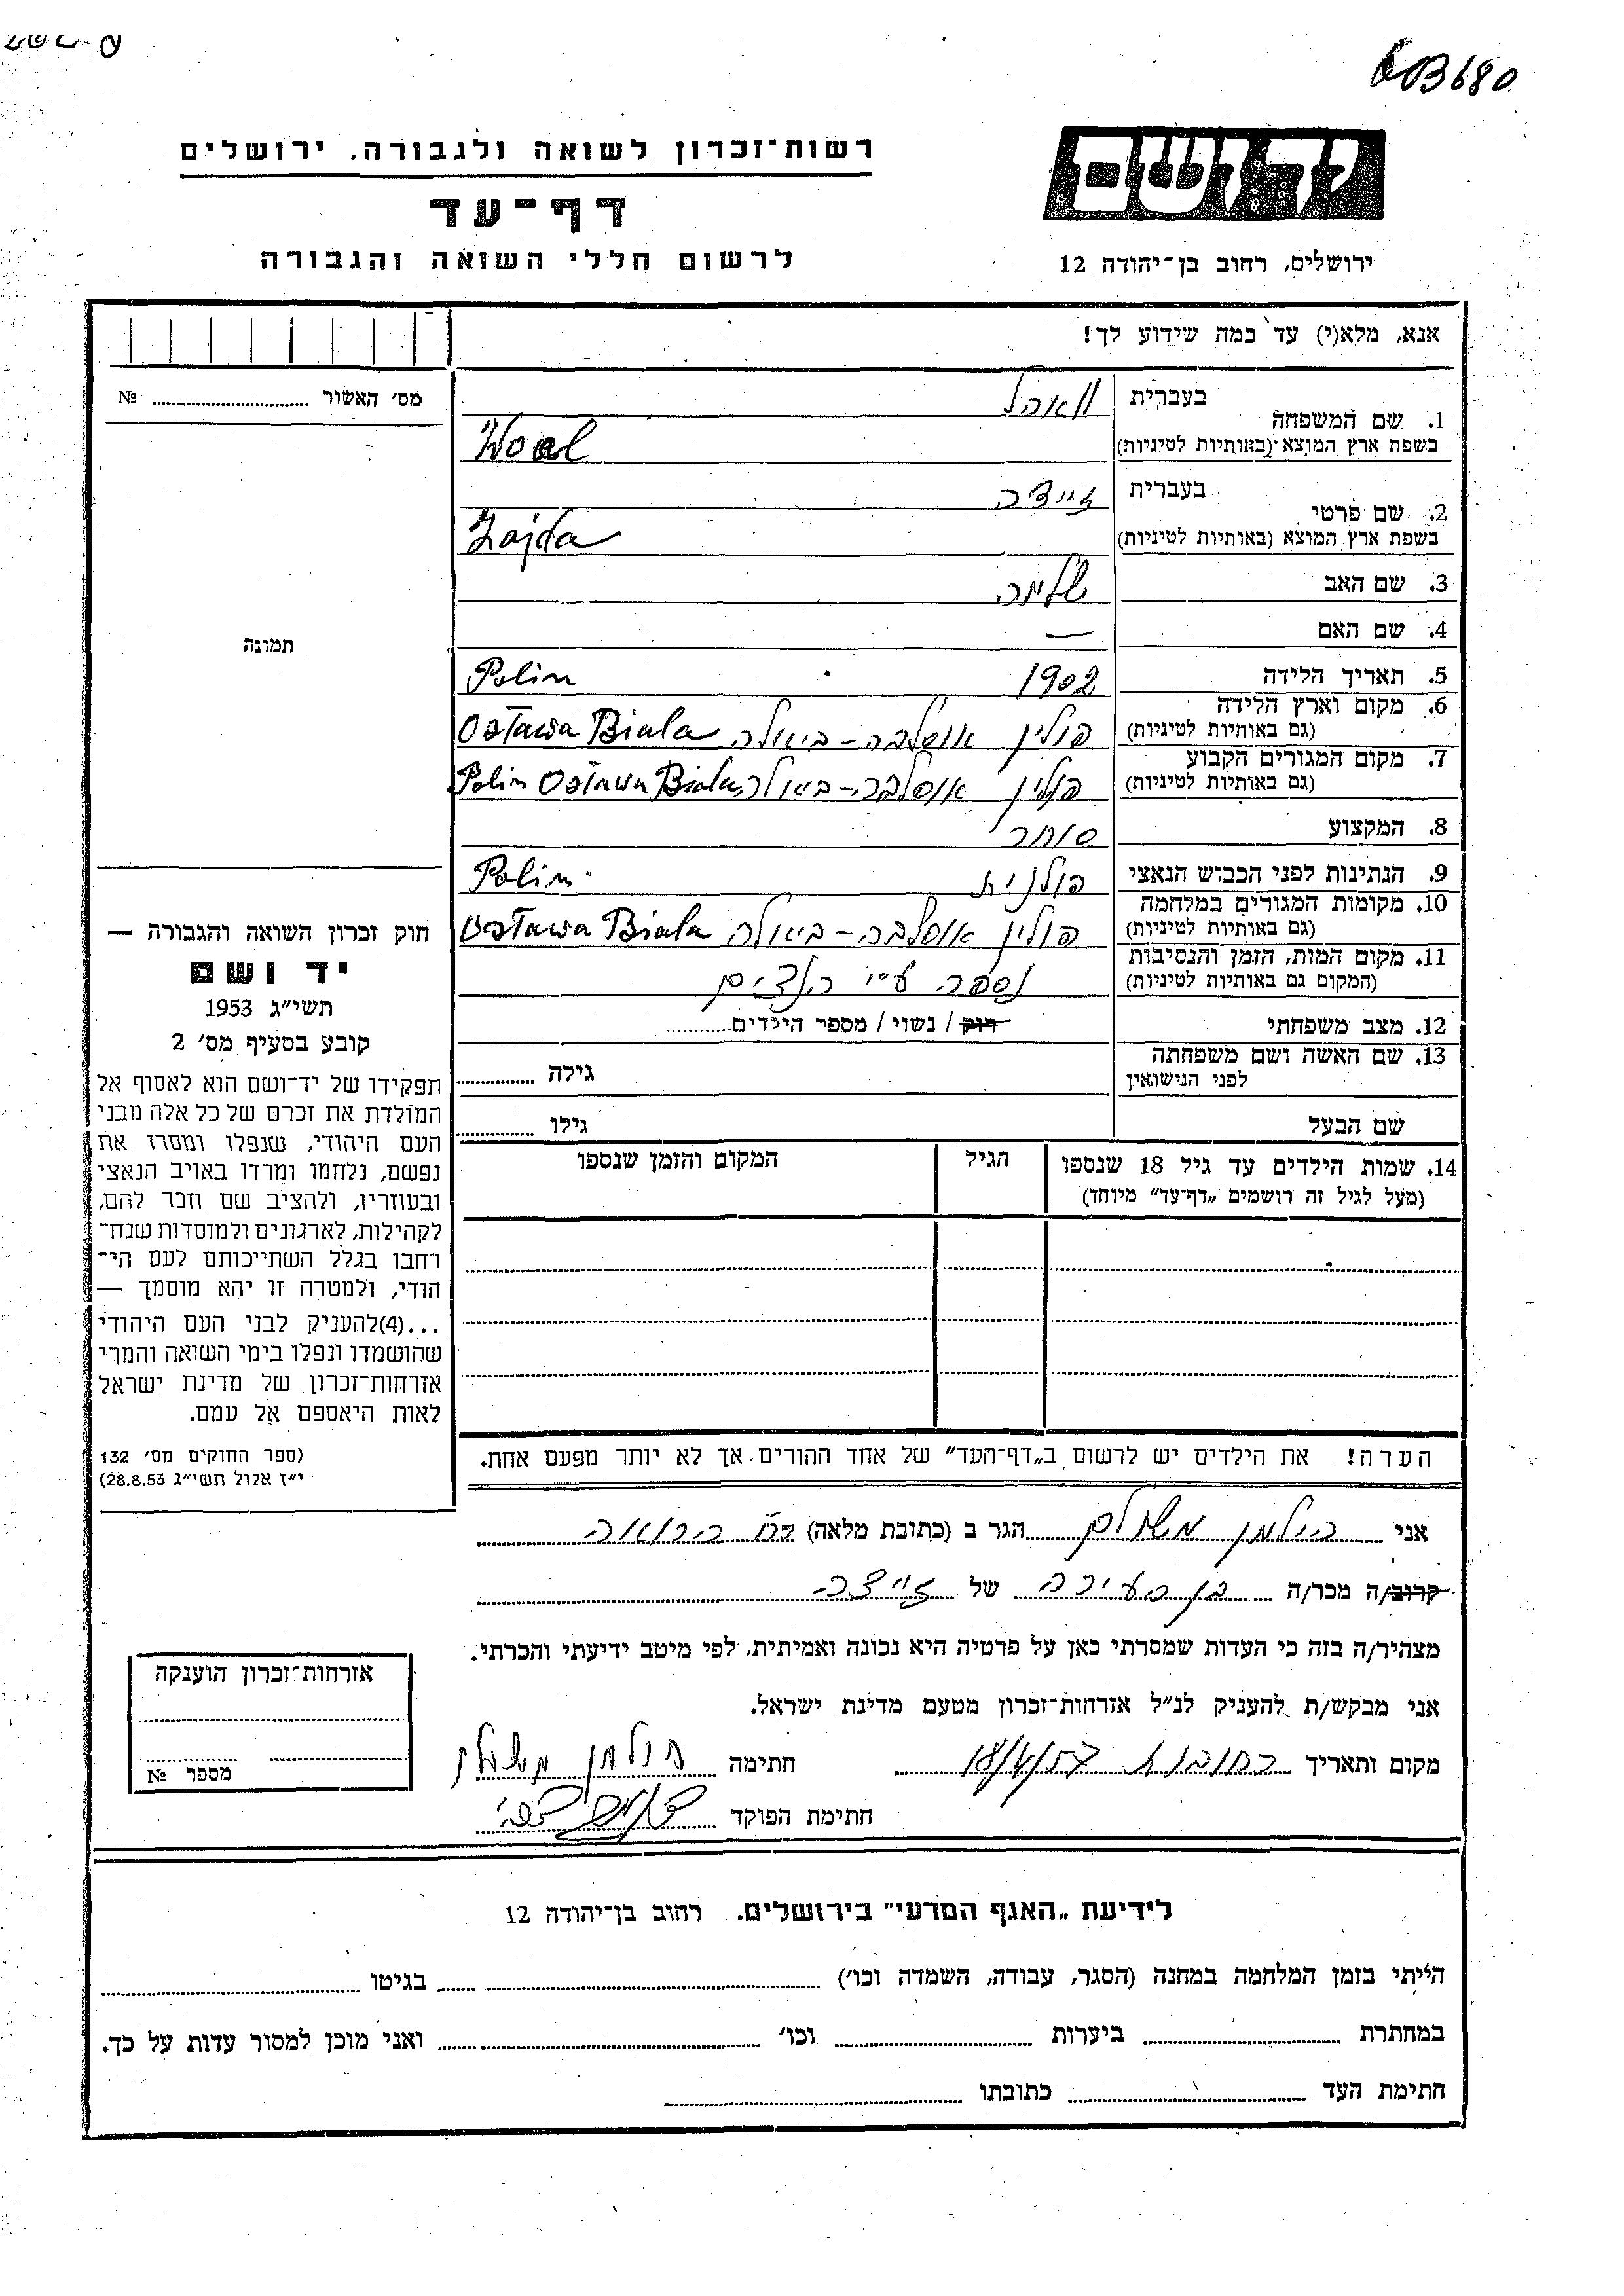 603680
יד ושם
רשות־זכרון לשואה ולגבורה, ירושלים
דף־עד
לרשום חללי השואה והגבורה
ירושלים, רחוב בן־יהודה 12
אנא, מלא(י) עד כמה שידוע לך!
מס׳ האשור № 
1. שם המשפחה
בעברית וואהל
בשפת ארץ המוצא (באותיות לטיניות) Woal
2. שם פרטי
בעברית זיידה
בשפת ארץ המוצא (באותיות לטיניות) Zajda
3. שם האב שלמה
4. שם האם —
תמונה
5. תאריך הלידה 1902 Polin
6. מקום וארץ הלידה
(גם באותיות לטיניות) פולין אוסלבה–ביאלה Ostawa Biala
7. מקום המגורים הקבוע
(גם באותיות לטיניות) פולין אוסלבה–ביאלה Polin Ostawa Biala
8. המקצוע סוחר
9. הנתינות לפני הכבוש הנאצי פולנית Polin
10. מקומות המגורים במלחמה
(גם באותיות לטיניות) פולין אוסלבה–ביאלה Ostawa Biala
11. מקום המות, הזמן והנסיבות
(המקום גם באותיות לטיניות) נספה ע״י הנאצים
12. מצב משפחתי רוק / נשוי / מספר הילדים
13. שם האשה ושם משפחתה
לפני הנישואין גילה
שם הבעל גילו
14. שמות הילדים עד גיל 18 שנספו
(מעל לגיל זה רושמים „דף־עד״ מיוחד)
הגיל
המקום והזמן שנספו
הערה! את הילדים יש לרשום ב„דף־העד״ של אחד ההורים, אך לא יותר מפעם אחת.
חוק זכרון השואה והגבורה —
יד ושם
תשי״ג 1953
קובע בסעיף מס׳ 2
תפקידו של יד־ושם הוא לאסוף אל
המולדת את זכרם של כל אלה מבני
העם היהודי, שנפלו ומסרו את
נפשם, נלחמו ומרדו באויב הנאצי
ובעוזריו, ולהציב שם וזכר להם,
לקהילות, לארגונים ולמוסדות שנח־
רחבו בגלל השתייכותם לעם הי־
הודי, ולמטרה זו יהא מוסמך —
...(4)להעניק לבני העם היהודי
שהושמדו ונפלו בימי השואה והמרי
אזרחות־זכרון של מדינת ישראל
לאות היאספם אל עמם.
(ספר החוקים מס׳ 132
י״ז אלול תשי״ג 28.8.53)
אני הילמן משולם הגר ב (כתובת מלאה)
קרוב/ה מכר/ה בן העירה של זיידה
מצהיר/ה בזה כי העדות שמסרתי כאן על פרטיה היא נכונה ואמיתית, לפי מיטב ידיעתי והכרתי.
אני מבקש/ת להעניק לנ״ל אזרחות־זכרון מטעם מדינת ישראל.
מקום ותאריך רחובות 18/4/57 חתימה הילמן משולם
חתימת הפוקד
אזרחות־זכרון הוענקה
מספר №
לידיעת „האגף המדעי״ בירושלים. רחוב בן־יהודה 12
הייתי בזמן המלחמה במחנה (הסגר, עבודה, השמדה וכו׳) בגיטו
במחתרת ביערות וכו׳ ואני מוכן למסור עדות על כך.
חתימת העד כתובתו